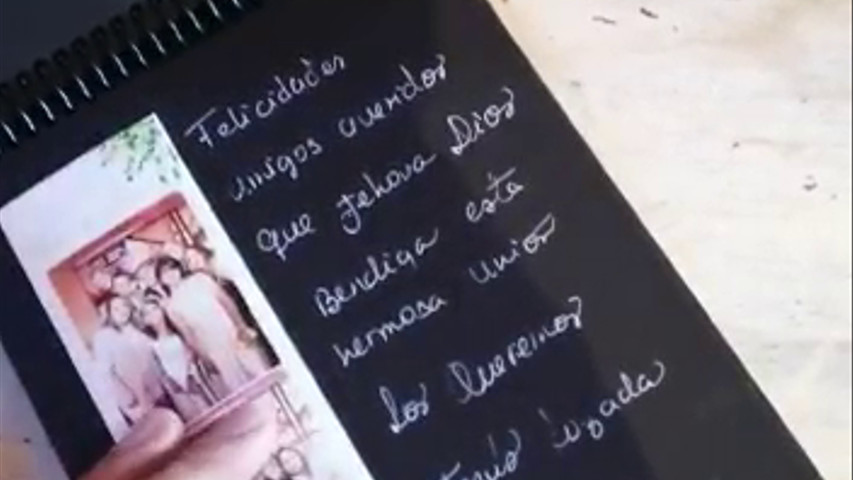 Felicidades
amigos queridos
que Jehova Dios
Bendiga está
hermosa unión
Los Queremos
Lozada